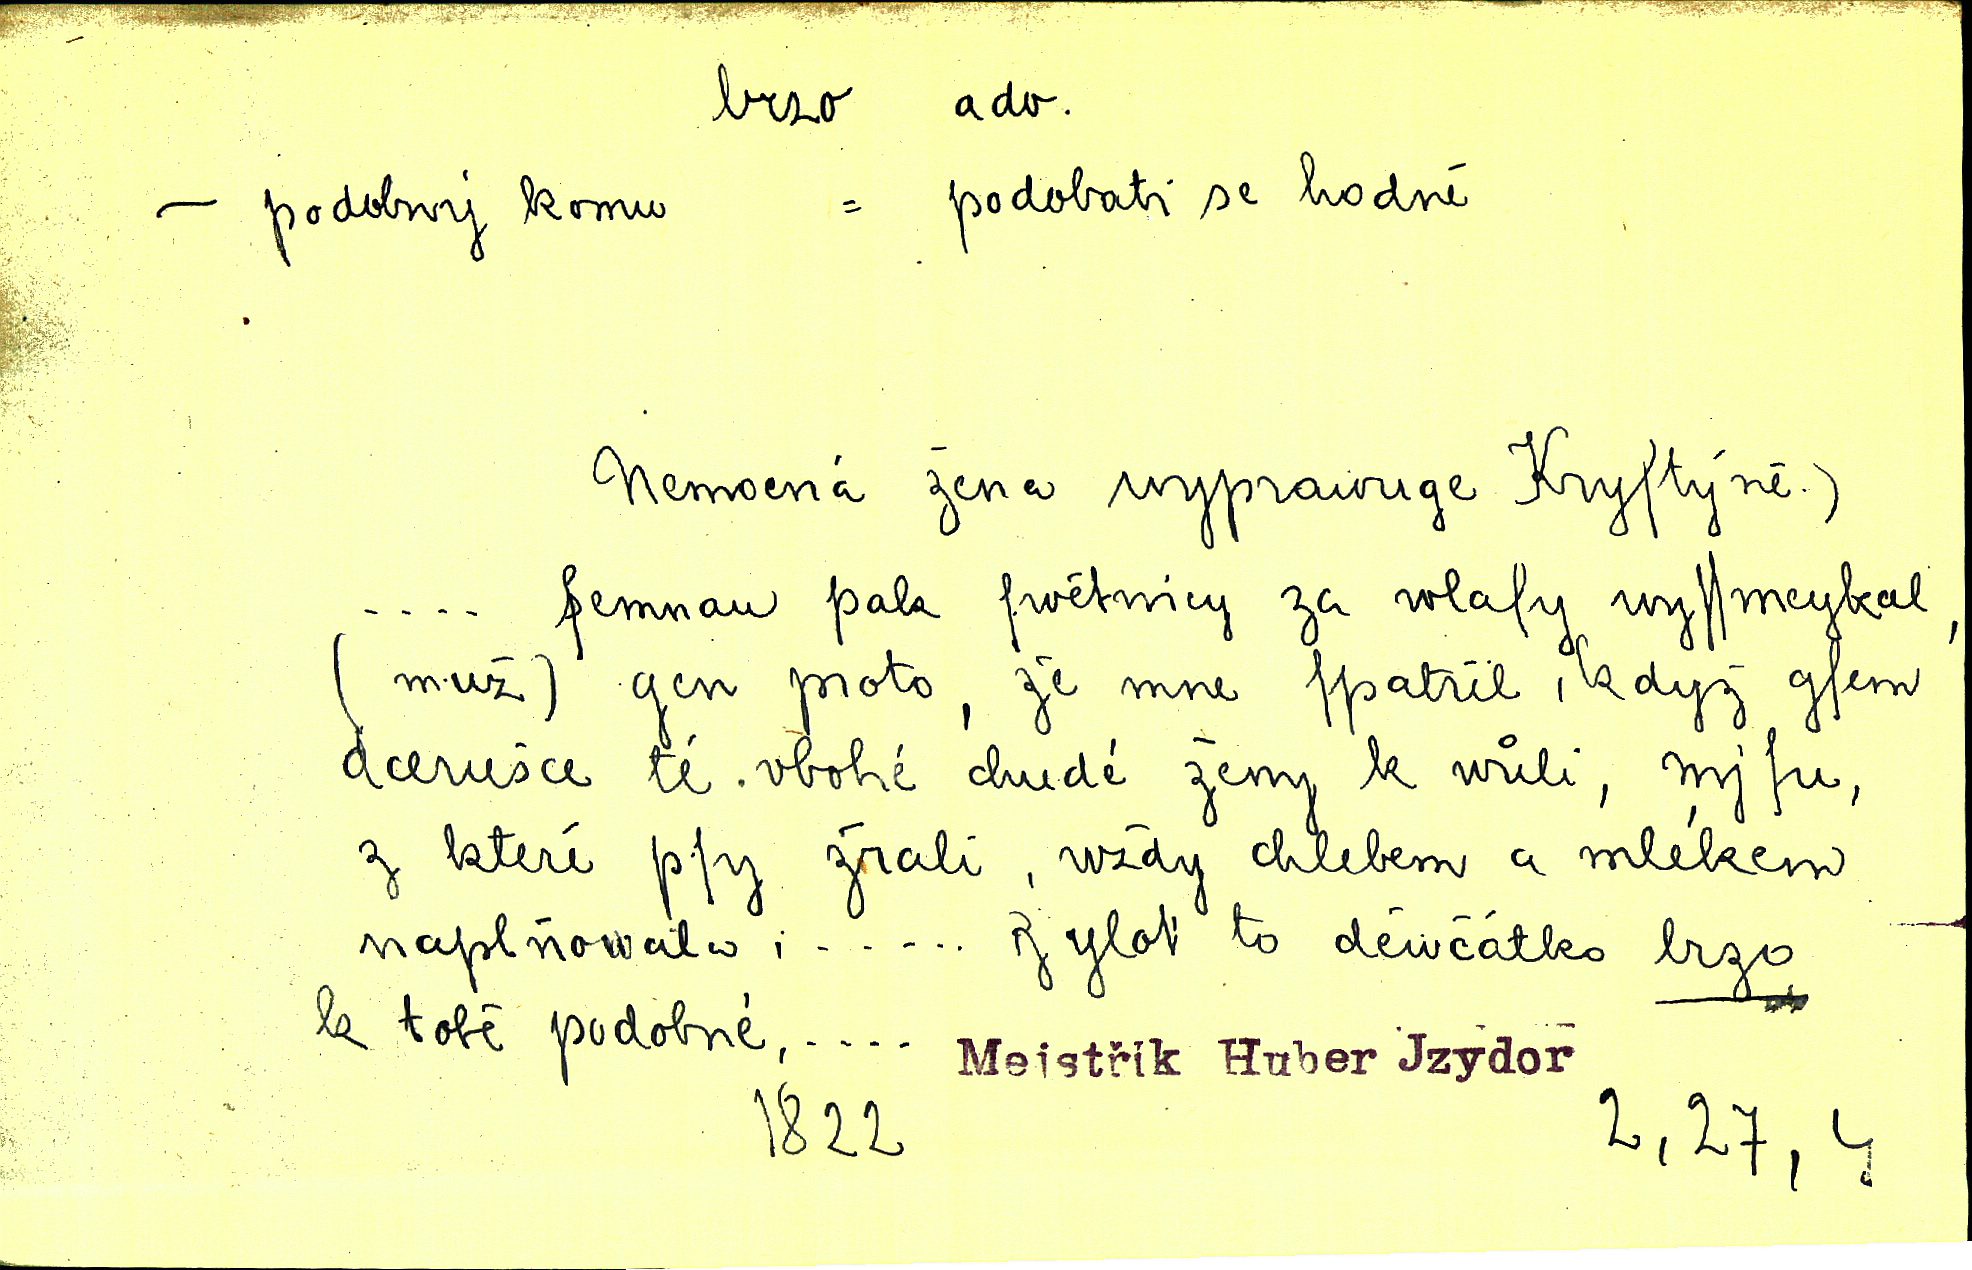 brzo adv.
— podobný komu = podobati se hodně
Nemocná žena wyprawuge Kryſtýně.)
---- ſemnau pak ſwětnicy za wlaſy wyſſmeykal,
(muž) gen proto, že mne ſpatřil, když gſem
dcerušce té vbohé chudé ženy k wůli, mjſu,
z které pſy žrali, wždy chlebem a mlékem
naplňowala; ------ to děwčátko brzo
k tobě podobné, ---- Meistřík Huber Jzydor
1822 2, 27, 4